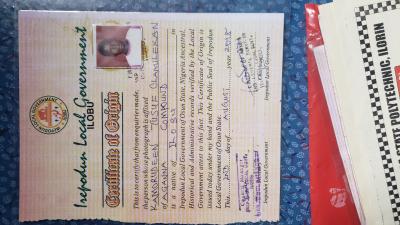 Irepodun Local Government
ILOBU
Certificate of Origin
This is to certify that from enquiries made,
the person whose photograph is affixed
KAMORUDEEN YUSUF OLAMILEKAN
of AGANNA COMPOUND
is a native of ILOBU
Irepodun Local Government of Osun State, Nigeria Ancestral,
Historical and Administrative records verified by the Local
Government attest to this fact. This Certificate of Origin is
issued today under my hand and the Public Seal of Irepodun
Local Government of Osun State.
This day of AUGUST year 2018
Irepodun Local Government
Irepodun Local Government
STATE POLYTECHNIC, ILORIN